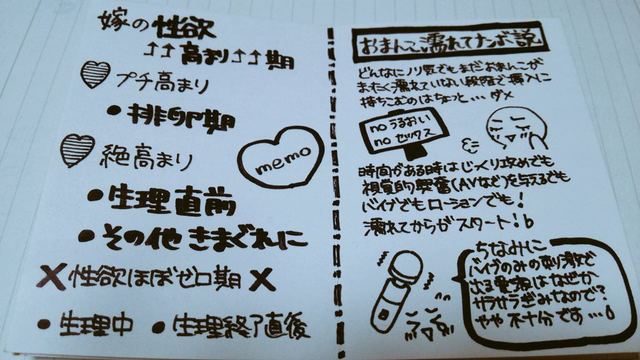 嫁の性欲
↑↑高まり↑↑期
プチ高まり
• 排卵期
絶高まり
memo
• 生理直前
• その他きまぐれに
×性欲ほぼゼロ期×
• 生理中 • 生理終了直後
おまんこ濡れてナンボ説
どんなにノリ気でもまだおまんこが
まったく濡れていない段階で挿入に
持ちこむのはちょっと…ダメ
no うるおい
no セックス
時間がある時はじっくり攻めでも
視覚的興奮(AVなど)を与えるでも
バイブでもローションでも!
濡れてからがスタート!
ちなみに
バイブのみの刺激で
出る愛液はなぜか
サラサラぎみなので?
やや不十分です…